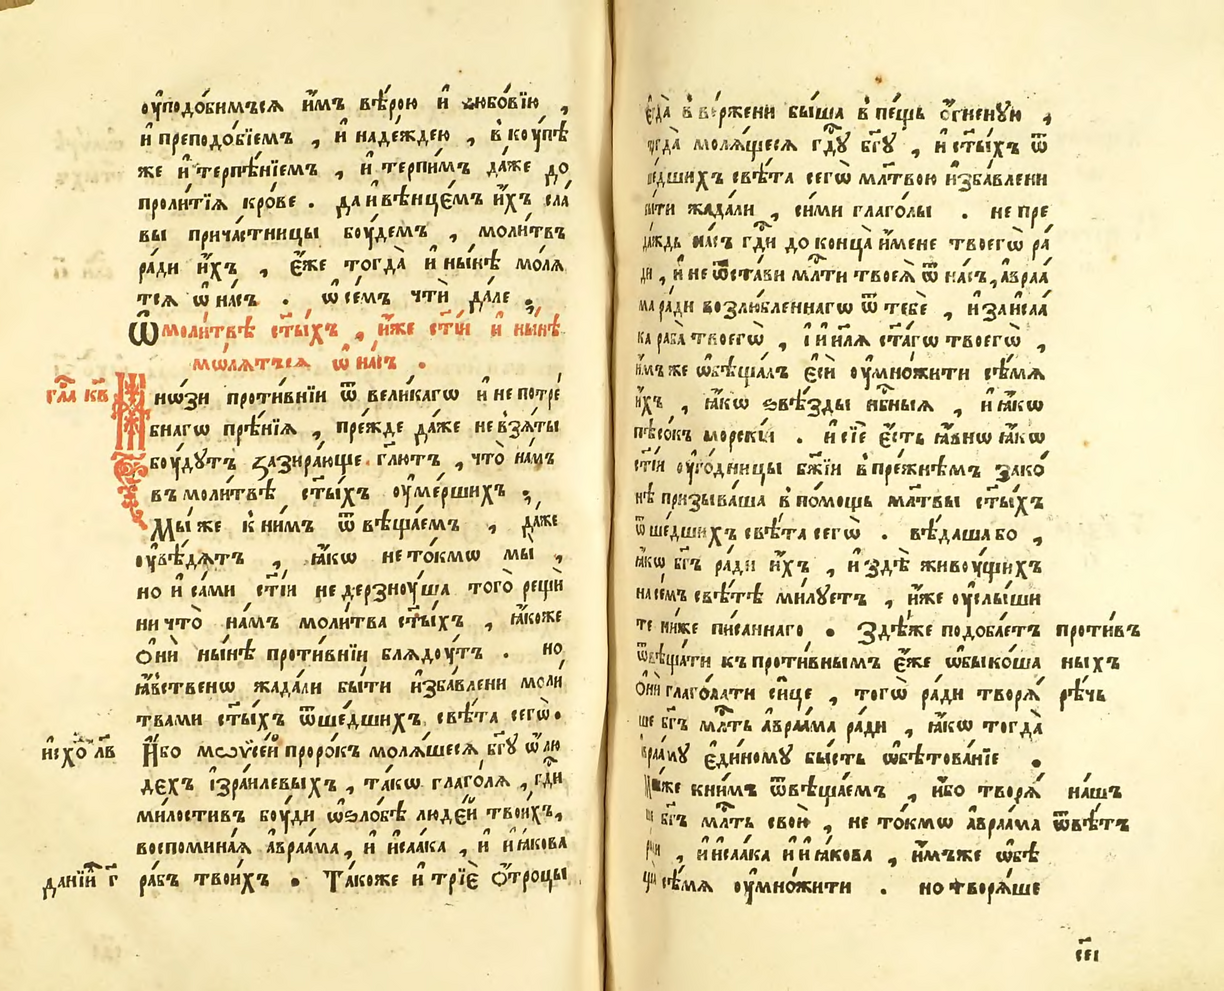 оуподо́бимъся и҆́мъ вѣ́рою и҆ любо́вїю ,
и҆ преподо́бїемъ , и҆ наде́ждею , в̾ коу́пѣ
же и҆ терпѣ́нїемъ , и҆ терпи́мъ да́же до
проли́тїѧ кро́ве . да и҆ вѣнце́мъ и҆́хъ сла́
вы прича́стницы боу́демъ , моли́твъ
ра́ди и҆́хъ , є҆́же тогда̀ и҆ ны́нѣ молѧ́
тсѧ ѡ҆ на́съ . ѡ҆ се́мъ чтѝ да́ле ;
Ѡ҆ моли́твѣ ст҃ы́хъ , и҆́же ст҃і́и и҆ ны́нѣ
мо́лѧтъсѧ ѡ҆ на́съ .
гла҃ кв҃
Мно́зи проти́внїи ѿ вели́кагѡ и҆ непотре́
бнагѡ прѣ́нїѧ , пре́жде да́же не взѧ́ты
боу́дутъ зазира́юще гл҃ютъ , что̀ на́мъ
въ моли́твѣ ст҃ы́хъ оуме́ршихъ ;
Мы́ же к̾ ни́мъ ѿвѣща́емъ , да́же
оувѣ́дѧтъ , ꙗ҆́кѡ не то́кмѡ мы̀ ,
но и҆ са́ми ст҃і́и не дерзноу́ша того̀ рещѝ
ни что̀ на́мъ моли́тва ст҃ы́хъ , ꙗ҆́коже
ѻ҆нѝ ны́нѣ проти́внїи блѧ́доутъ . но
ꙗ҆́вственѡ жада́ли бы́ти и҆зба́влени моли́
твами ст҃ы́хъ ѿше́дшихъ свѣ́та сегѡ̀ .
и҆схо́ лв҃
И҆́бо мѡѷсе́й проро́къ молѧ́щесѧ бг҃у ѡ҆ лю
де́хъ і҆зра́илевыхъ , та́кѡ глаго́лѧ , гд҃и
ми́лостивъ боу́ди ѡ҆ ѕло́бѣ люде́й твои́хъ ,
воспомина́ѧ а҆враа́ма , и҆ и҆саа́ка , и҆ и҆ꙗ́кова
данїи́ г҃
ра́бъ твои́хъ . Та́коже и҆ трїѐ ѻ҆́троцы
є҆гда̀ вве́ржени бы́ша в̾ пе́щь ѻ҆́гненꙋю ,
тогда̀ молѧ́щесѧ гд҃у бг҃у , и҆ ст҃ы́хъ ѿ
ше́дшихъ свѣ́та сегѡ̀ мл҃твою и҆зба́влени
бы́ти жада́ли , си́ми глаго́лы . не пре
да́ждь на́съ гд҃и до конца̀ и҆́мене твоегѡ̀ ра́
ди , и҆ не ѿста́ви мл҃ти твоеѧ̀ ѿ на́съ , а҆враа́
ма ра́ди возлю́бленнагѡ ѿ тебѐ , и҆ за и҆саа́
ка раба̀ твоегѡ̀ , і҆ и҆и҃лѧ ст҃а́гѡ твоегѡ̀ ,
и҆́мъ же ѡ҆бѣща́лъ є҆сѝ оумно́жити сѣ́мѧ
и҆́хъ , ꙗ҆́кѡ ѕвѣ́зды нб҃ныѧ , и҆ ꙗ҆́кѡ
пѣсо́къ морскі́и . и҆ сїѐ є҆́сть ꙗ҆́внѡ ꙗ҆́кѡ
ст҃і́и оуго́дницы бж҃їи в̾ пре́жнѣмъ зако́
нѣ призыва́ша в̾ по́мощь мл҃твы ст҃ы́хъ
ѿше́дшихъ свѣ́та сегѡ̀ . вѣ́даша бо ,
ꙗ҆́кѡ бг҃ъ ра́ди и҆́хъ , и҆ здѣ̀ живоу́щихъ
на се́мъ свѣ́тѣ ми́луетъ , и҆́же оуслы́ши
те ни́же пи́саннаго . Здѣ́же подоба́етъ
ѿвѣща́ти къ проти́внымъ є҆́же ѡ҆быко́ша
ѻ҆нѝ глаго́лати си́це , тогѡ̀ ра́ди творѧ́
ше бг҃ъ мл҃ть а҆враа́ма ра́ди , ꙗ҆́кѡ тогда̀
а҆враа́му є҆ди́ному бы́сть ѡ҆бѣтова́нїе .
проти́въ
ны́хъ
рѣ́чь
Мы́же к ни́мъ ѿвѣща́емъ , и҆́бо творѧ́
ше бг҃ъ мл҃ть свою̀ , не то́кмѡ а҆враа́ма
ра́ди , и҆ и҆саа́ка и҆ и҆ꙗ́кова , и҆́мъже ѡ҆бѣ
ща̀ сѣ́мѧ оумно́жити . но творѧ́ше
на́шъ
ѿвѣ́тъ
сєі҃